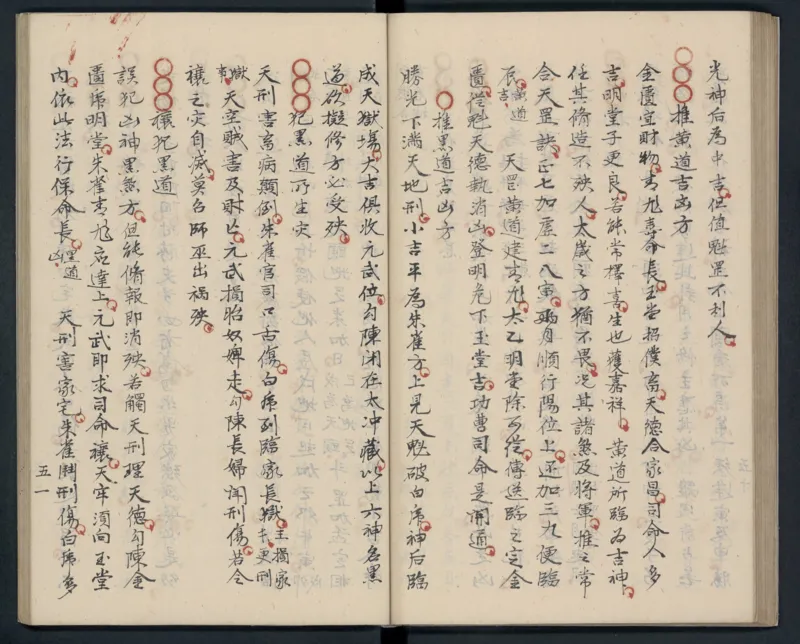 光神后為中吉但值魁罡不利人
推黃道吉凶方
金匱宜財物青龙壽命長玉堂招僕畜天德合家昌司命人多
吉明堂子更良若能常擇高生也獲嘉祥 黃道所臨為吉神
任其脩造不殃人太歲之方猶不畏况其諸煞及將軍推之常
合天罡訣正七加 二八寅 月順行陽位上还加三九便臨
辰黃道吉 天罡黃道建青九太乙明堂除 從傳送臨之定金
匱從魁天德執消凶登明危下玉堂吉功曹司命是開通
推黑道吉凶方
勝光下滿天地刑小吉平為朱雀方上見天魁破白虎神后臨
成天獄場大吉俱收元武位勾陳闲在太冲藏以上六神名黑
道欲擬修方必受殃
犯黑道所生灾
天刑害畜病顛倒朱雀官司口舌傷白虎到臨家長獄主損家長更刑
獄事天空賊害及財亡元武損 奴婢走勾陳長婦 刑傷若令
禳之灾自减莫名師巫出禍殃
禳犯黑道
誤犯凶神黑煞方但能脩報即消殃若觸天刑理天德勾陳金
匱虎明堂朱雀青九启達上元武即求司命禳天牢須向玉堂
內依此法行保命長黑道凶 天刑害家宅朱雀鬪刑傷白虎多
五一